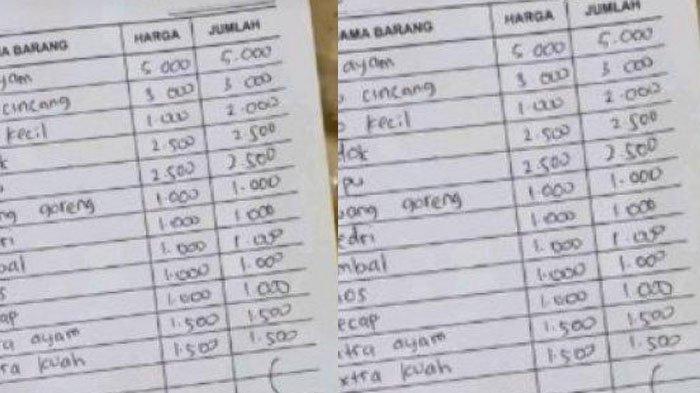 A BARANG HARGA JUMLAH
ayam 5.000 5.000
cincang 3 000 3 000
kecil 1.000 2.000
ok 2.500 2 500
2.500 2.500
ng goreng 1.000 1.000
dri 1.000 1 000
bal 1.000 1.000
os 1.000 1.000
ap 1.000 1.000
ra ayam 1.500 1.500
ra kuah 1.500 1.500
AMA BARANG HARGA JUMLAH
ayam 5 000 5.000
cincang 3 000 3 000
kecil 1.000 2.000
dok 2.500 2 500
pu 2.500 2.500
ang goreng 1.000 1.000
edri 1.000 1 000
mbal 1.000 1.000
os 1.000 1.000
ecap 1.000 1.000
xtra ayam 1.500 1.500
xtra kuah 1.500 1.500